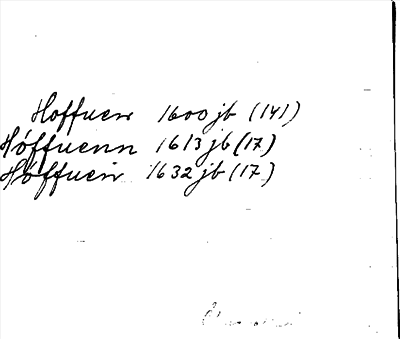 Hoffuen 1600 jb (141)
Hóffúenn 1613 jb (17)
Hóffúein 1632 jb (17)